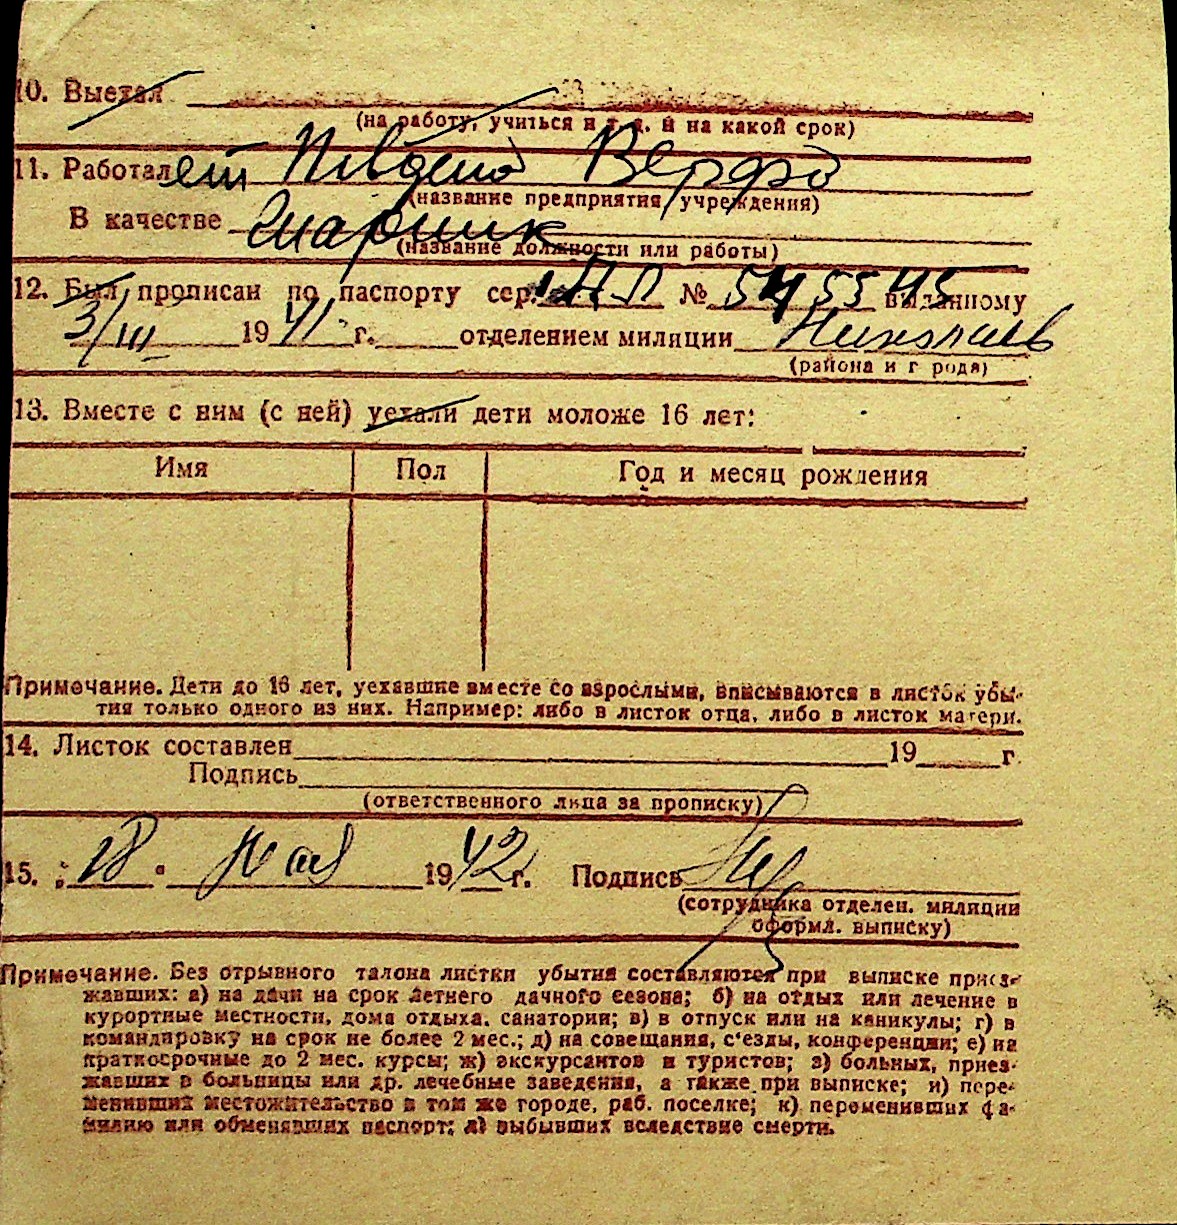 10. Выехал
(на работу, учиться и т. д. и на какой срок)
11. Работает Південа Верфь
(название предприятия, учреждения)
В качестве
(название должности или работы)
12. Был прописан по паспорту сер. № 545545 выданному
3/III 1941 г. отделением милиции Николаев
(района и г рода)
13. Вместе с ним (с ней) уехали дети моложе 16 лет:
Имя Пол Год и месяц рождения
Примечание. Дети до 16 лет, уехавшие вместе со взрослыми, вписываются в листок убы-
тия только одного из них. Например: либо в листок отца, либо в листок матери.
14. Листок составлен 19 г.
Подпись
(ответственного лица за прописку)
15. 28 мая 1942 г. Подпись
(сотрудника отделен. милиции
оформл. выписку)
Примечание. Без отрывного талона листки убытия составляются при выписке приез-
жавших: а) на дачи на срок летнего дачного сезона; б) на отдых или лечение в
курортные местности, дома отдыха, санатории; в) в отпуск или на каникулы; г) в
командировку на срок не более 2 мес.; д) на совещания, с'езды, конференции; е) на
краткосрочные до 2 мес. курсы; ж) экскурсантов и туристов; з) больных, приез-
жавших в больницы или др. лечебные заведения, а также при выписке; и) пере-
менивших местожительство в том же городе, раб. поселке; к) переменивших фа-
милию или обменявших паспорт; л) выбывших вследствие смерти.